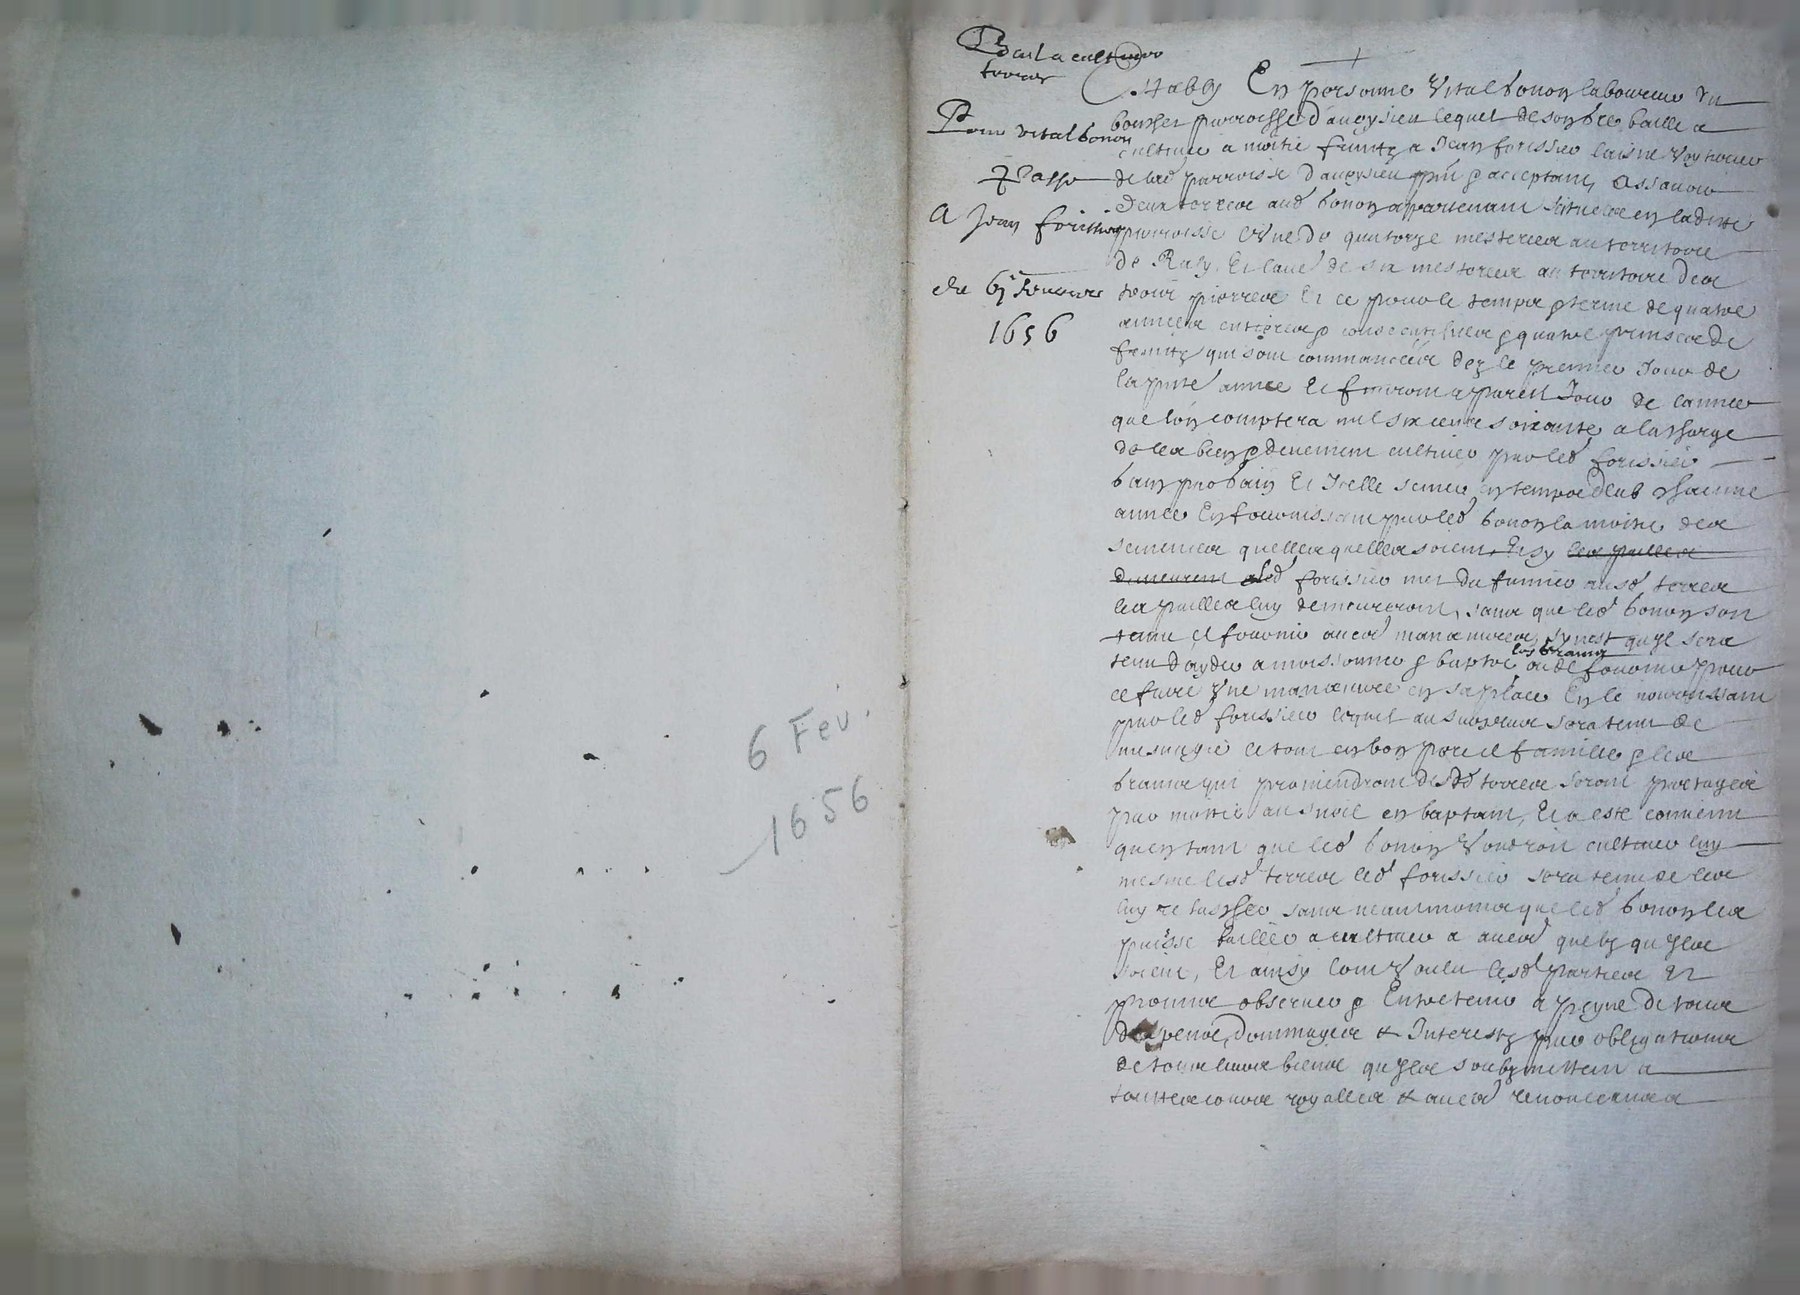 6 Fev.
1656
Bail a culture
terres
Pour vital bonon
passe
A Jean forissier
du 6e febvrier
1656
Estably En personne Vital bonon laboureur du
parroisse d'aveysieu lequel de son gre baille a
culture a moitie fruitz a Jean forissier laisne
de lad parroisse d'aveysieu pnt & acceptant, Assavoir
Deux terres aud bonon appartenant situees en laditte
parroisse Lune de quatorze mesterees au territoire
de Et laue de six mesterees au territoire des
pierres Et ce pour le temps & terme de quatre
annees entieres & consecutives & quatre prinses de
fruitz qui sont commancees dez le premier Jour de
la pnte annee Et finiront a pareil Jour de lannee
que lon comptera mil six cents soixante a la charge
de les bien & deuement cultiver par led forissier
Et Icelle semer en temps deub chacune
annee En fournissant par led bonon la moitie des
semences quelles quelles soient, Et sy les pailles
demeurent aled forissier met du fumier ausd terres
les pailles luy demeureront, sans que led bonon soit
tenu de fournir aucunes manoeuvres, sy nest quil sera
tenu dayder a moissonner & baptre les grains ou de fournir pour
ce faire Une manoeuvre en sa place En le nourrissant
par led forissier lequel au surplus sera tenu de
mesnager le tout en bon pere de famille & les
grains qui proviendront desd terres seront partages
par moitie au sueil en baptant, Et a este convenu
quen tant que led bonon Voudroit cultiver luy
mesme lesd terres led forissier sera tenu de les
luy relascher sans neantmoings que led bonon les
puisse bailler a cultiver a aucuns quelz quilz
soient, Et ainsy lont Voulu lesd parties Et
promis observer & Entretenir a peyne de tous
despens, Dommages & Interestz par obligations
de tous leurs biens quilz soubzmettent a
touttes cours royalles & aucuns renonceances